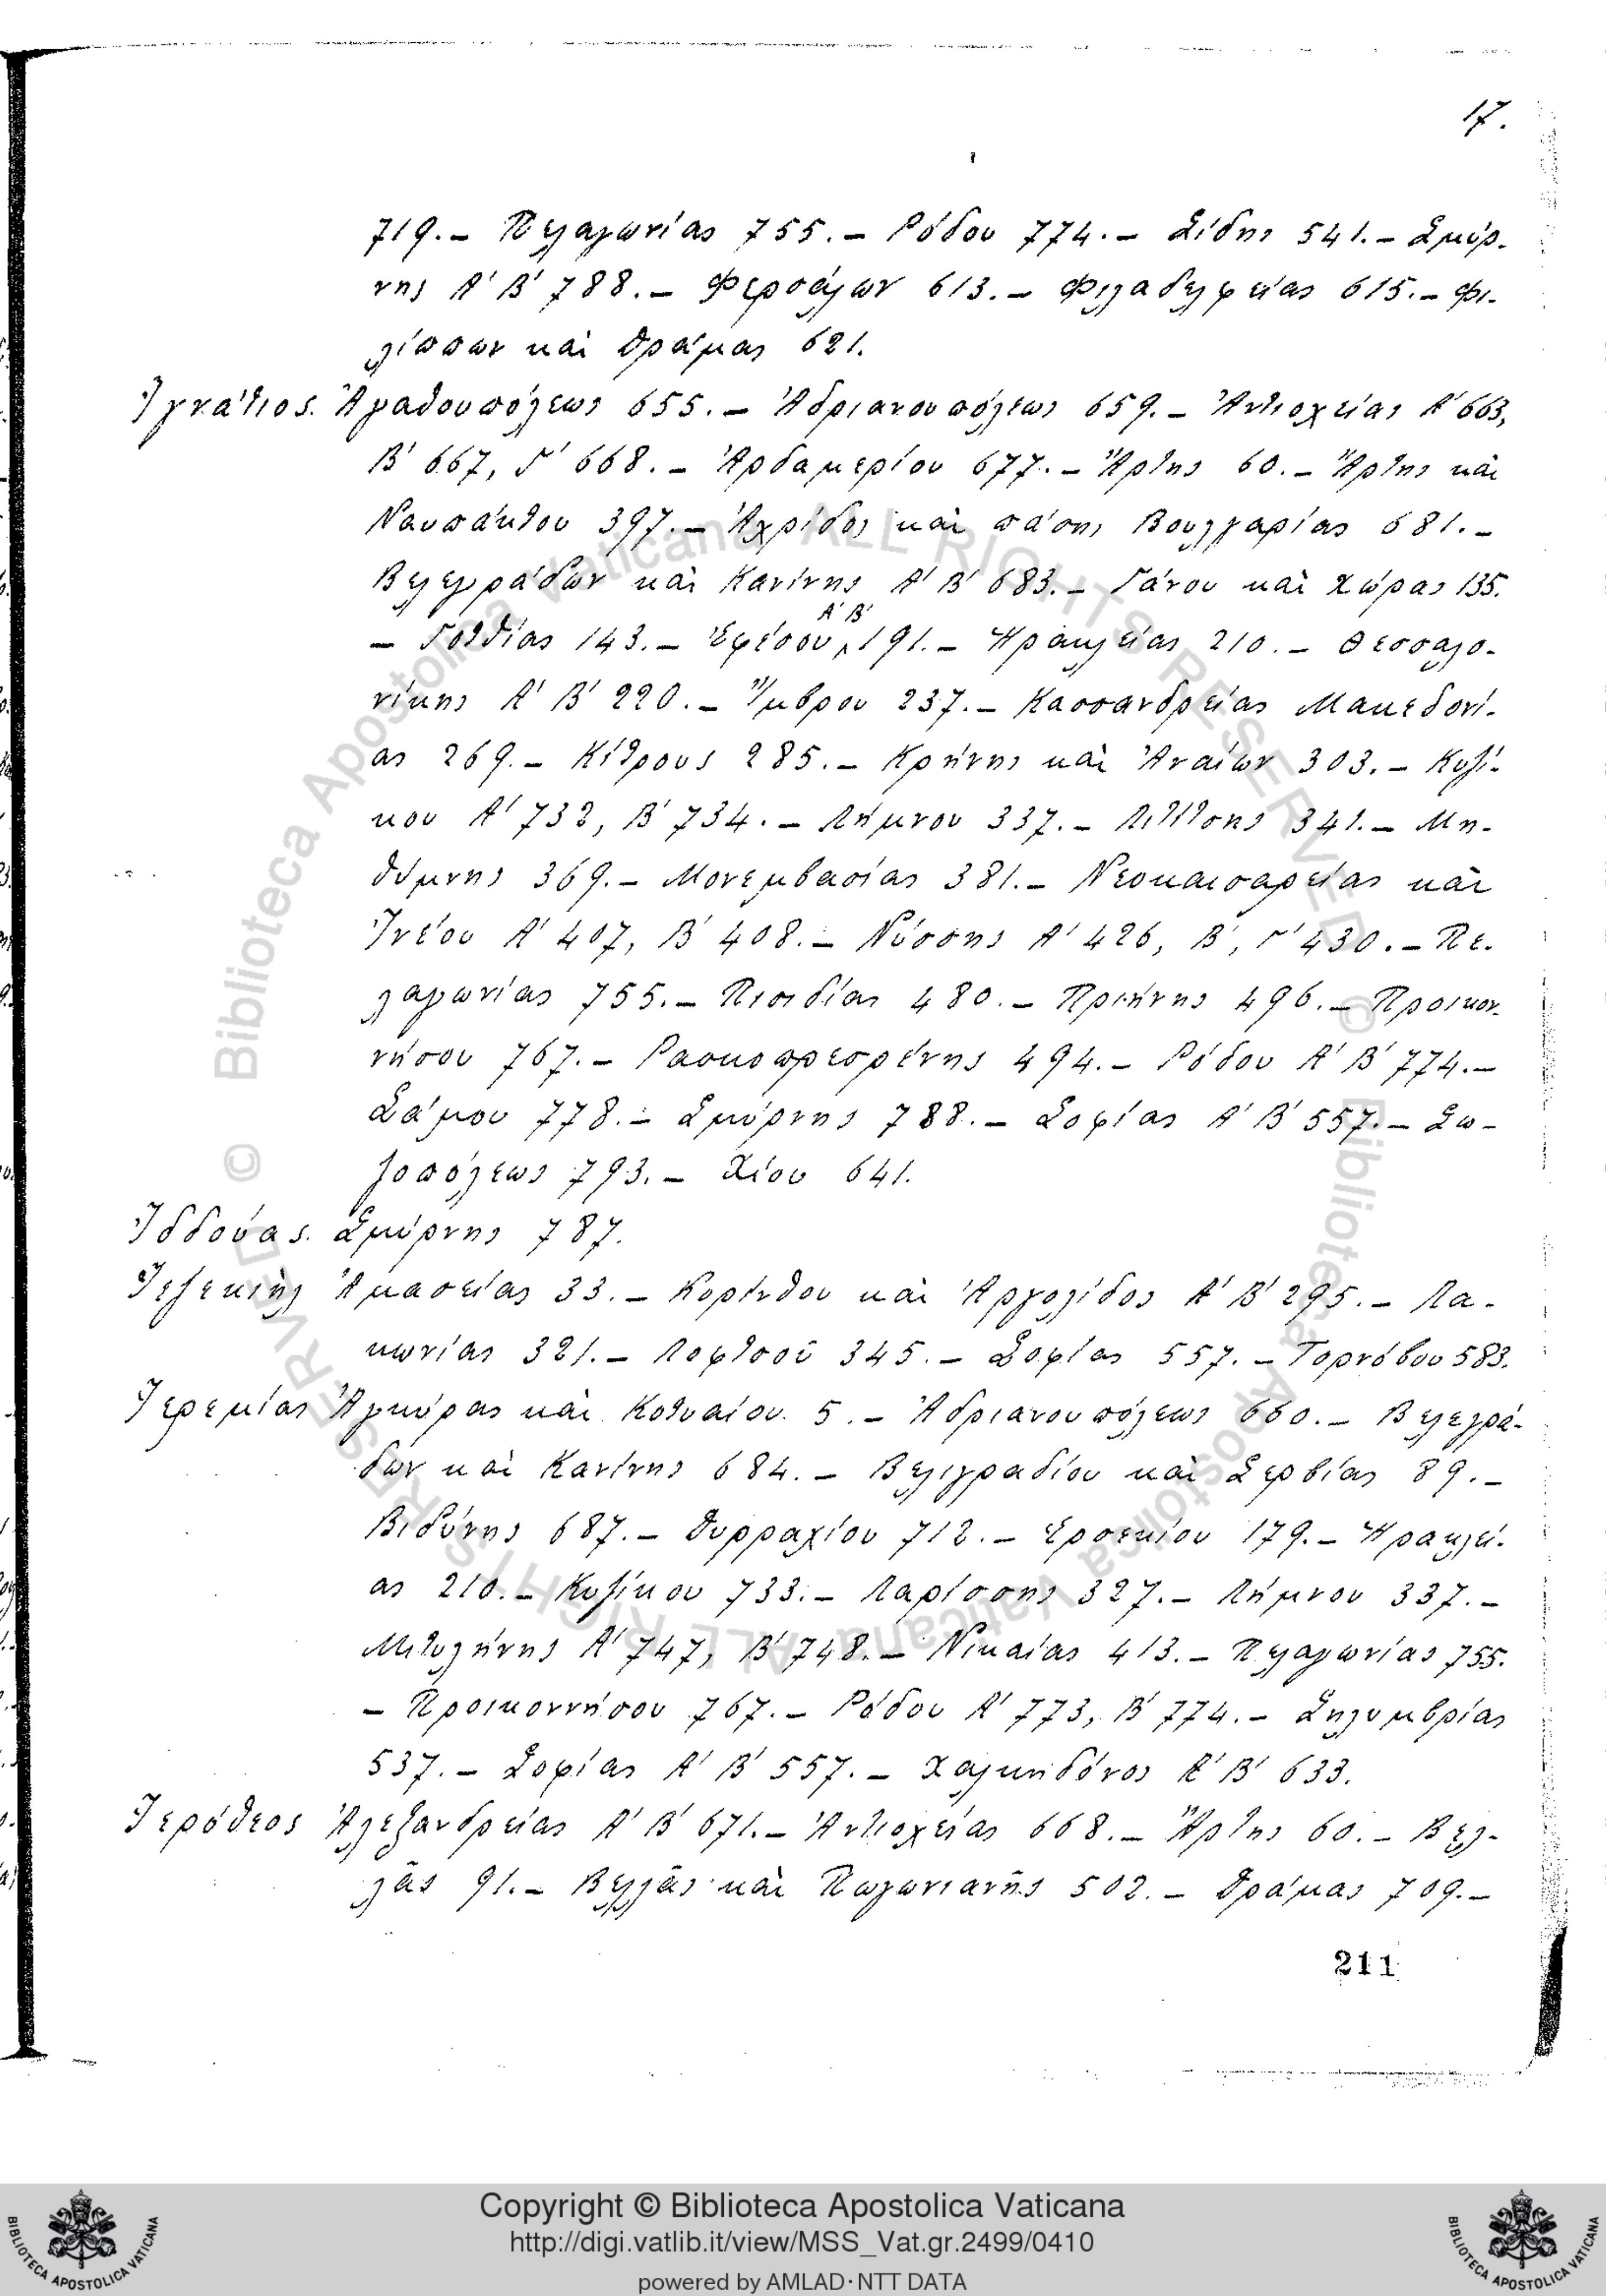 17.
719.– Πελαγωνίας 755.– Ρόδου 774.– Σίδης 541.– Σμύρ-
νης Α′ Β′ 788.– Φερσάλων 613.– Φιλαδελφείας 615.– Φι-
λίππων καὶ Δράμας 621.
Ἰγνάτιος. Ἀγαθουπόλεως 655.– Ἀδριανουπόλεως 659.– Ἀντιοχείας Α′ 663,
Β′ 667, Γ′ 668.– Ἀρδαμερίου 677.– Ἄρτης 60.– Ἄρτης καὶ
Ναυπάκτου 397.– Ἀχρίδος καὶ πάσης Βουλγαρίας 681.–
Βελεγράδων καὶ Κανίνης Α′ Β′ 683.– Γάνου καὶ Χώρας 135.
– Γοτθίας 143.– Ἐφέσου Α′ Β′ 191.– Ἡρακλείας 210.– Θεσσαλο-
νίκης Α′ Β′ 220.– Ἴμβρου 237.– Κασσανδρείας Μακεδονί-
ας 269.– Κίτρους 285.– Κρήνης καὶ Ἀναίων 303.– Κυζί-
κου Α′ 732, Β′ 734.– Λήμνου 337.– Λιτίτσης 341.– Μη-
θύμνης 369.– Μονεμβασίας 381.– Νεοκαισαρείας καὶ
Ἰνέου Α′ 407, Β′ 408.– Νύσσης Α′ 426, Β′, Γ′ 430.– Πε-
λαγωνίας 755.– Πισιδίας 480.– Πριήνης 496.– Προικον-
νήσου 767.– Ρασκοπρεσρένης 494.– Ρόδου Α′ Β′ 774.–
Σάμου 778.– Σμύρνης 788.– Σοφίας Α′ Β′ 557.– Σω-
ζοπόλεως 793.– Χίου 641.
Ἰδδούας. Σμύρνης 787.
Ἰεζεκιὴλ Ἀμασείας 33.– Κορίνθου καὶ Ἀργολίδος Α′ Β′ 295.– Λα-
κωνίας 321.– Λοφτσοῦ 345.– Σοφίας 557.– Τορνόβου 583.
Ἰερεμίας Ἀγκύρας καὶ Κοτυαίου 5.– Ἀδριανουπόλεως 660.– Βελεγρά-
δων καὶ Κανίνης 684.– Βελιγραδίου καὶ Σερβίας 89.–
Βιδύνης 687.– Δυρραχίου 712.– Ἐρσεκίου 179.– Ἡρακλεί-
ας 210.– Κυζίκου 733.– Λαρίσσης 327.– Λήμνου 337.–
Μιτυλήνης Α′ 747, Β′ 748.– Νικαίας 413.– Πελαγωνίας 755.
– Προικοννήσου 767.– Ρόδου Α′ 773, Β′ 774.– Σηλυμβρίας
537.– Σοφίας Α′ Β′ 557.– Χαλκηδόνος Α′ Β′ 633.
Ἰερόθεος Ἀλεξανδρείας Α′ Β′ 671.– Ἀντιοχείας 668.– Ἄρτης 60.– Βελ-
λᾶς 91.– Βελλᾶς καὶ Πωγωνιανῆς 502.– Δράμας 709.–
211
© Biblioteca Apostolica Vaticana ALL RIGHTS RESERVED
© Biblioteca Apostolica Vaticana ALL RIGHTS RESERVED
Copyright © Biblioteca Apostolica Vaticana
http://digi.vatlib.it/view/MSS_Vat.gr.2499/0410
powered by AMLAD·NTT DATA
BIBLIOTECA APOSTOLICA VATICANA
BIBLIOTECA APOSTOLICA VATICANA